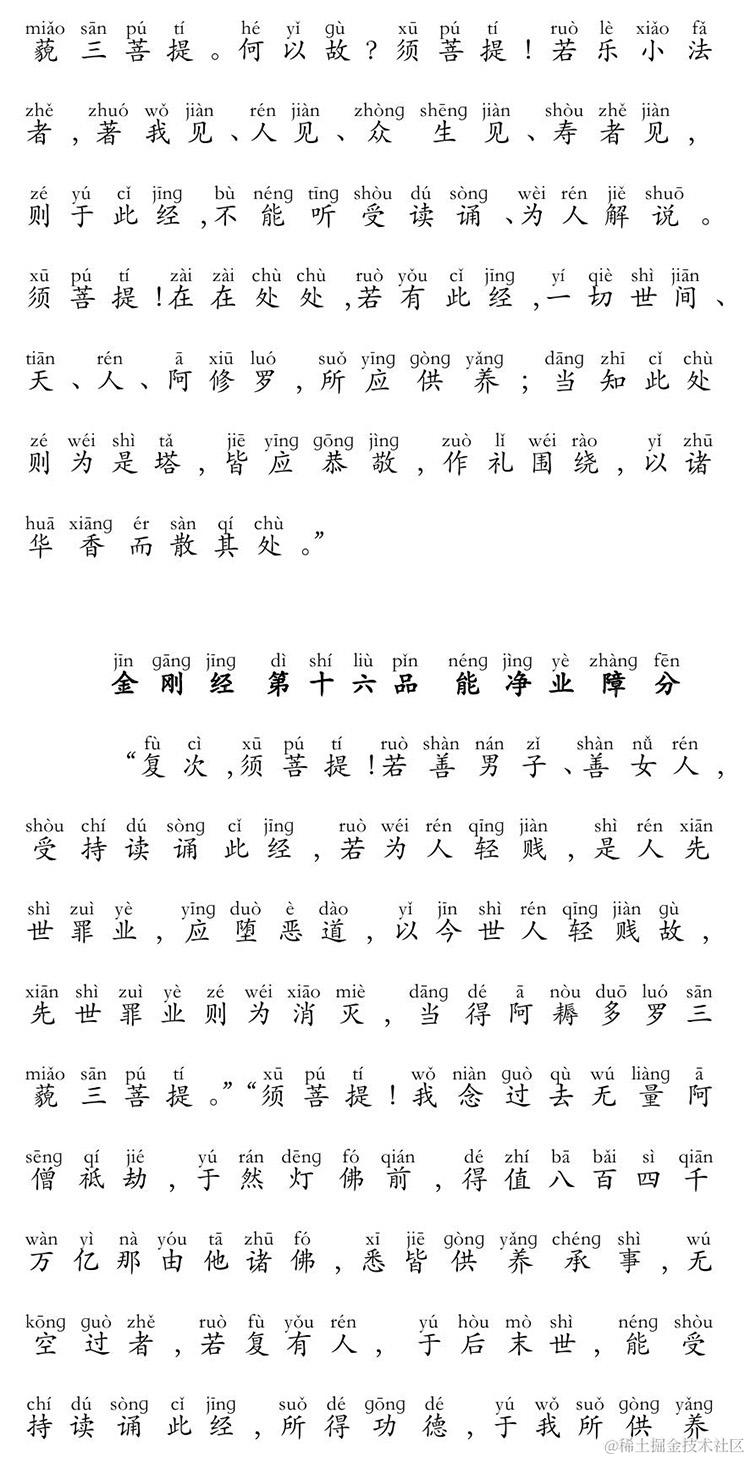 miǎo sān pú tí hé yǐ gù xū pú tí ruò lè xiǎo fǎ
藐三菩提。何以故?须菩提!若乐小法
zhě zhuó wǒ jiàn rén jiàn zhòng shēng jiàn shòu zhě jiàn
者,著我见、人见、众生见、寿者见,
zé yú cǐ jīng bù néng tīng shòu dú sòng wèi rén jiě shuō
则于此经,不能听受读诵、为人解说。
xū pú tí zài zài chù chù ruò yǒu cǐ jīng yí qiè shì jiān
须菩提!在在处处,若有此经,一切世间、
tiān rén ā xiū luó suǒ yīng gòng yǎng dāng zhī cǐ chù
天、人、阿修罗,所应供养;当知此处
zé wéi shì tǎ jiē yīng gōng jìng zuò lǐ wéi rào yǐ zhū
则为是塔,皆应恭敬,作礼围绕,以诸
huā xiāng ér sàn qí chù
华香而散其处。”
jīn gāng jīng dì shí liù pǐn néng jìng yè zhàng fēn
金刚经 第十六品 能净业障分
fù cì xū pú tí ruò shàn nán zǐ shàn nǚ rén
“复次,须菩提!若善男子、善女人,
shòu chí dú sòng cǐ jīng ruò wéi rén qīng jiàn shì rén xiān
受持读诵此经,若为人轻贱,是人先
shì zuì yè yīng duò è dào yǐ jīn shì rén qīng jiàn gù
世罪业,应堕恶道,以今世人轻贱故,
xiān shì zuì yè zé wéi xiāo miè dāng dé ā nòu duō luó sān
先世罪业则为消灭,当得阿耨多罗三
miǎo sān pú tí xū pú tí wǒ niàn guò qù wú liàng ā
藐三菩提。”“须菩提!我念过去无量阿
sēng qí jié yú rán dēng fó qián dé zhí bā bǎi sì qiān
僧祗劫,于然灯佛前,得值八百四千
wàn yì nà yóu tā zhū fó xī jiē gòng yǎng chéng shì wú
万亿那由他诸佛,悉皆供养承事,无
kōng guò zhě ruò fù yǒu rén yú hòu mò shì néng shòu
空过者,若复有人,于后末世,能受
chí dú sòng cǐ jīng suǒ dé gōng dé yú wǒ suǒ gòng yǎng
持读诵此经,所得功德,于我所供养
@稀土掘金技术社区